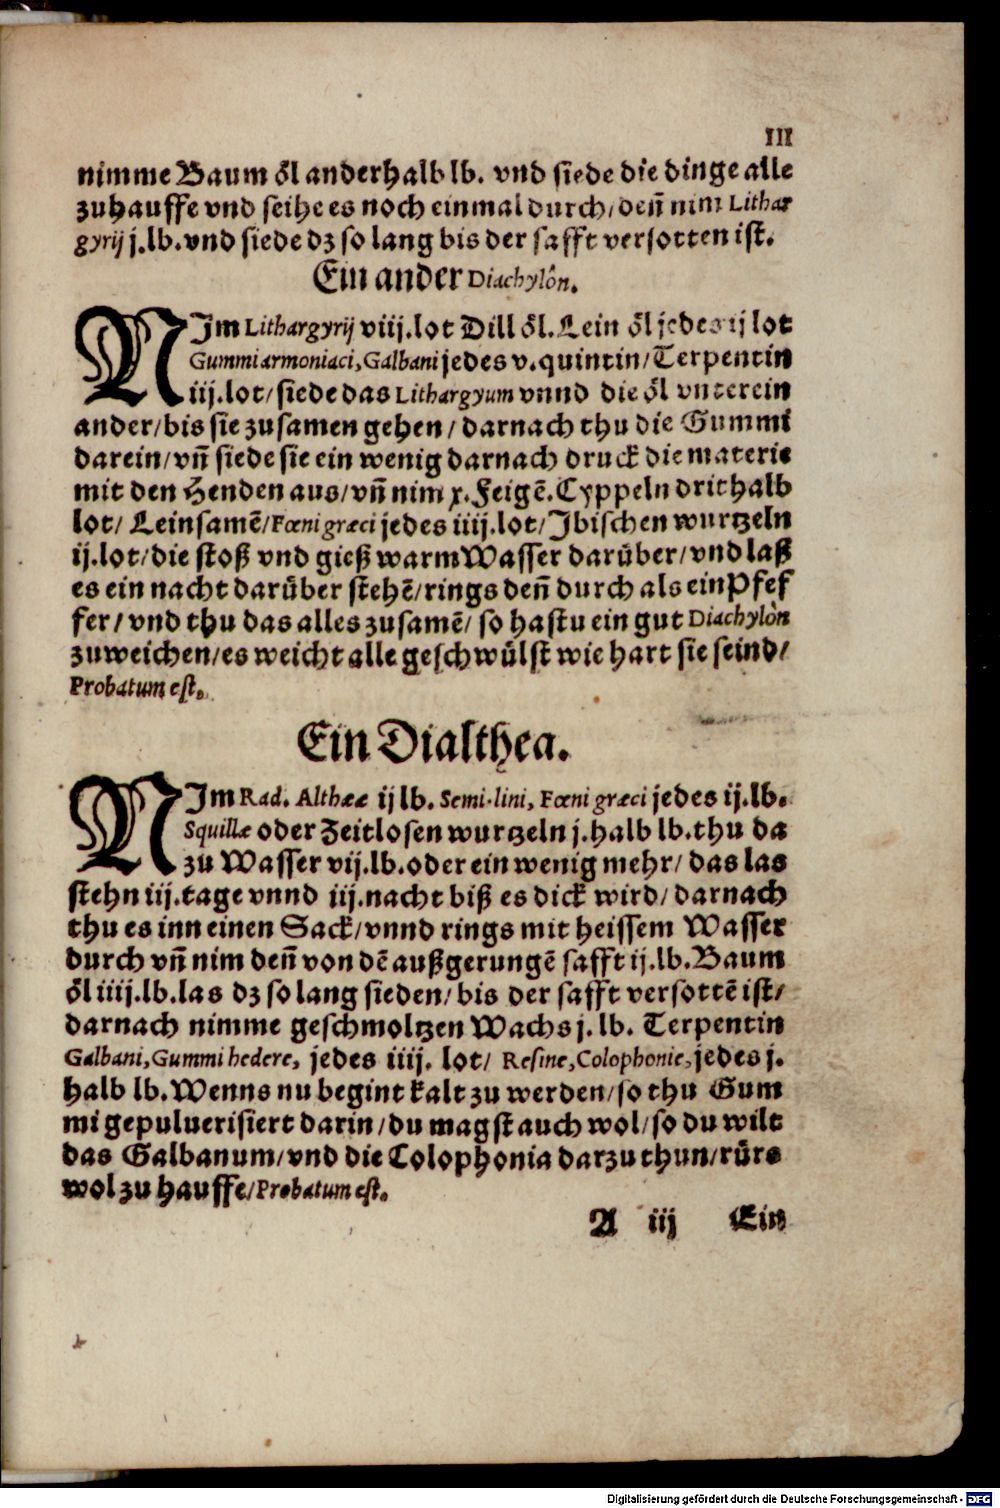 III
nimme Baum öl anderhalb lb. vnd siede die dinge alle
zuhauffe vnd seihe es noch einmal durch/ deñ nim Lithar
gyrij j.lb.vnd siede dz so lang bis der safft versotten ist.
Ein ander Diachylôn.
NIm Lithargyrij viij.lot Dill öl.Lein öl jedes ij lot
Gummi armoniaci, Galbani jedes v.quintin/Terpentin
iij.lot/siede das Lithargyum vnnd die öl vnterein
ander/bis sie zusamen gehen/ darnach thu die Gummi
darein/vñ siede sie ein wenig darnach druck die materie
mit den Henden aus/vñ nim x.Feigẽ.Cyppeln drithalb
lot/ Leinsamẽ/Fœni græci jedes iiij.lot/Ibischen wurtzeln
ij.lot/die stoß vnd gieß warm Wasser darüber/vnd laß
es ein nacht darüber stehẽ/rings deñ durch als ein Pfef
fer/ vnd thu das alles zusamẽ/ so hastu ein gut Diachylòn
zuweichen/es weicht alle geschwülst wie hart sie seind/
Probatum est.
Ein Dialthea.
NIm Rad. Altheæ ij lb. Semi.lini, Fœni græci jedes ij.lb.
Squillæ oder Zeitlosen wurtzeln j.halb lb.thu da
zu Wasser vij.lb.oder ein wenig mehr/ das las
stehn iij.tage vnnd iij.nacht biß es dick wird/ darnach
thu es inn einen Sack/vnnd rings mit heissem Wasser
durch vñ nim deñ von dẽ außgerungẽ safft ij.lb.Baum
öl iiij.lb.las dz so lang sieden/bis der safft versottẽ ist/
darnach nimme geschmoltzen Wachs j.lb. Terpentin
Galbani, Gummi hedere, jedes iiij. lot/ Resine, Colophonie, jedes j.
halb lb.Wenns nu begint kalt zu werden/so thu Gum
mi gepuluerisiert darin/du magst auch wol/so du wilt
das Galbanum/vnd die Colophonia darzu thun/rürs
wol zu hauffe/Probatum est.
A iij Ein
Digitalisierung gefördert durch die Deutsche Forschungsgemeinschaft - DFG